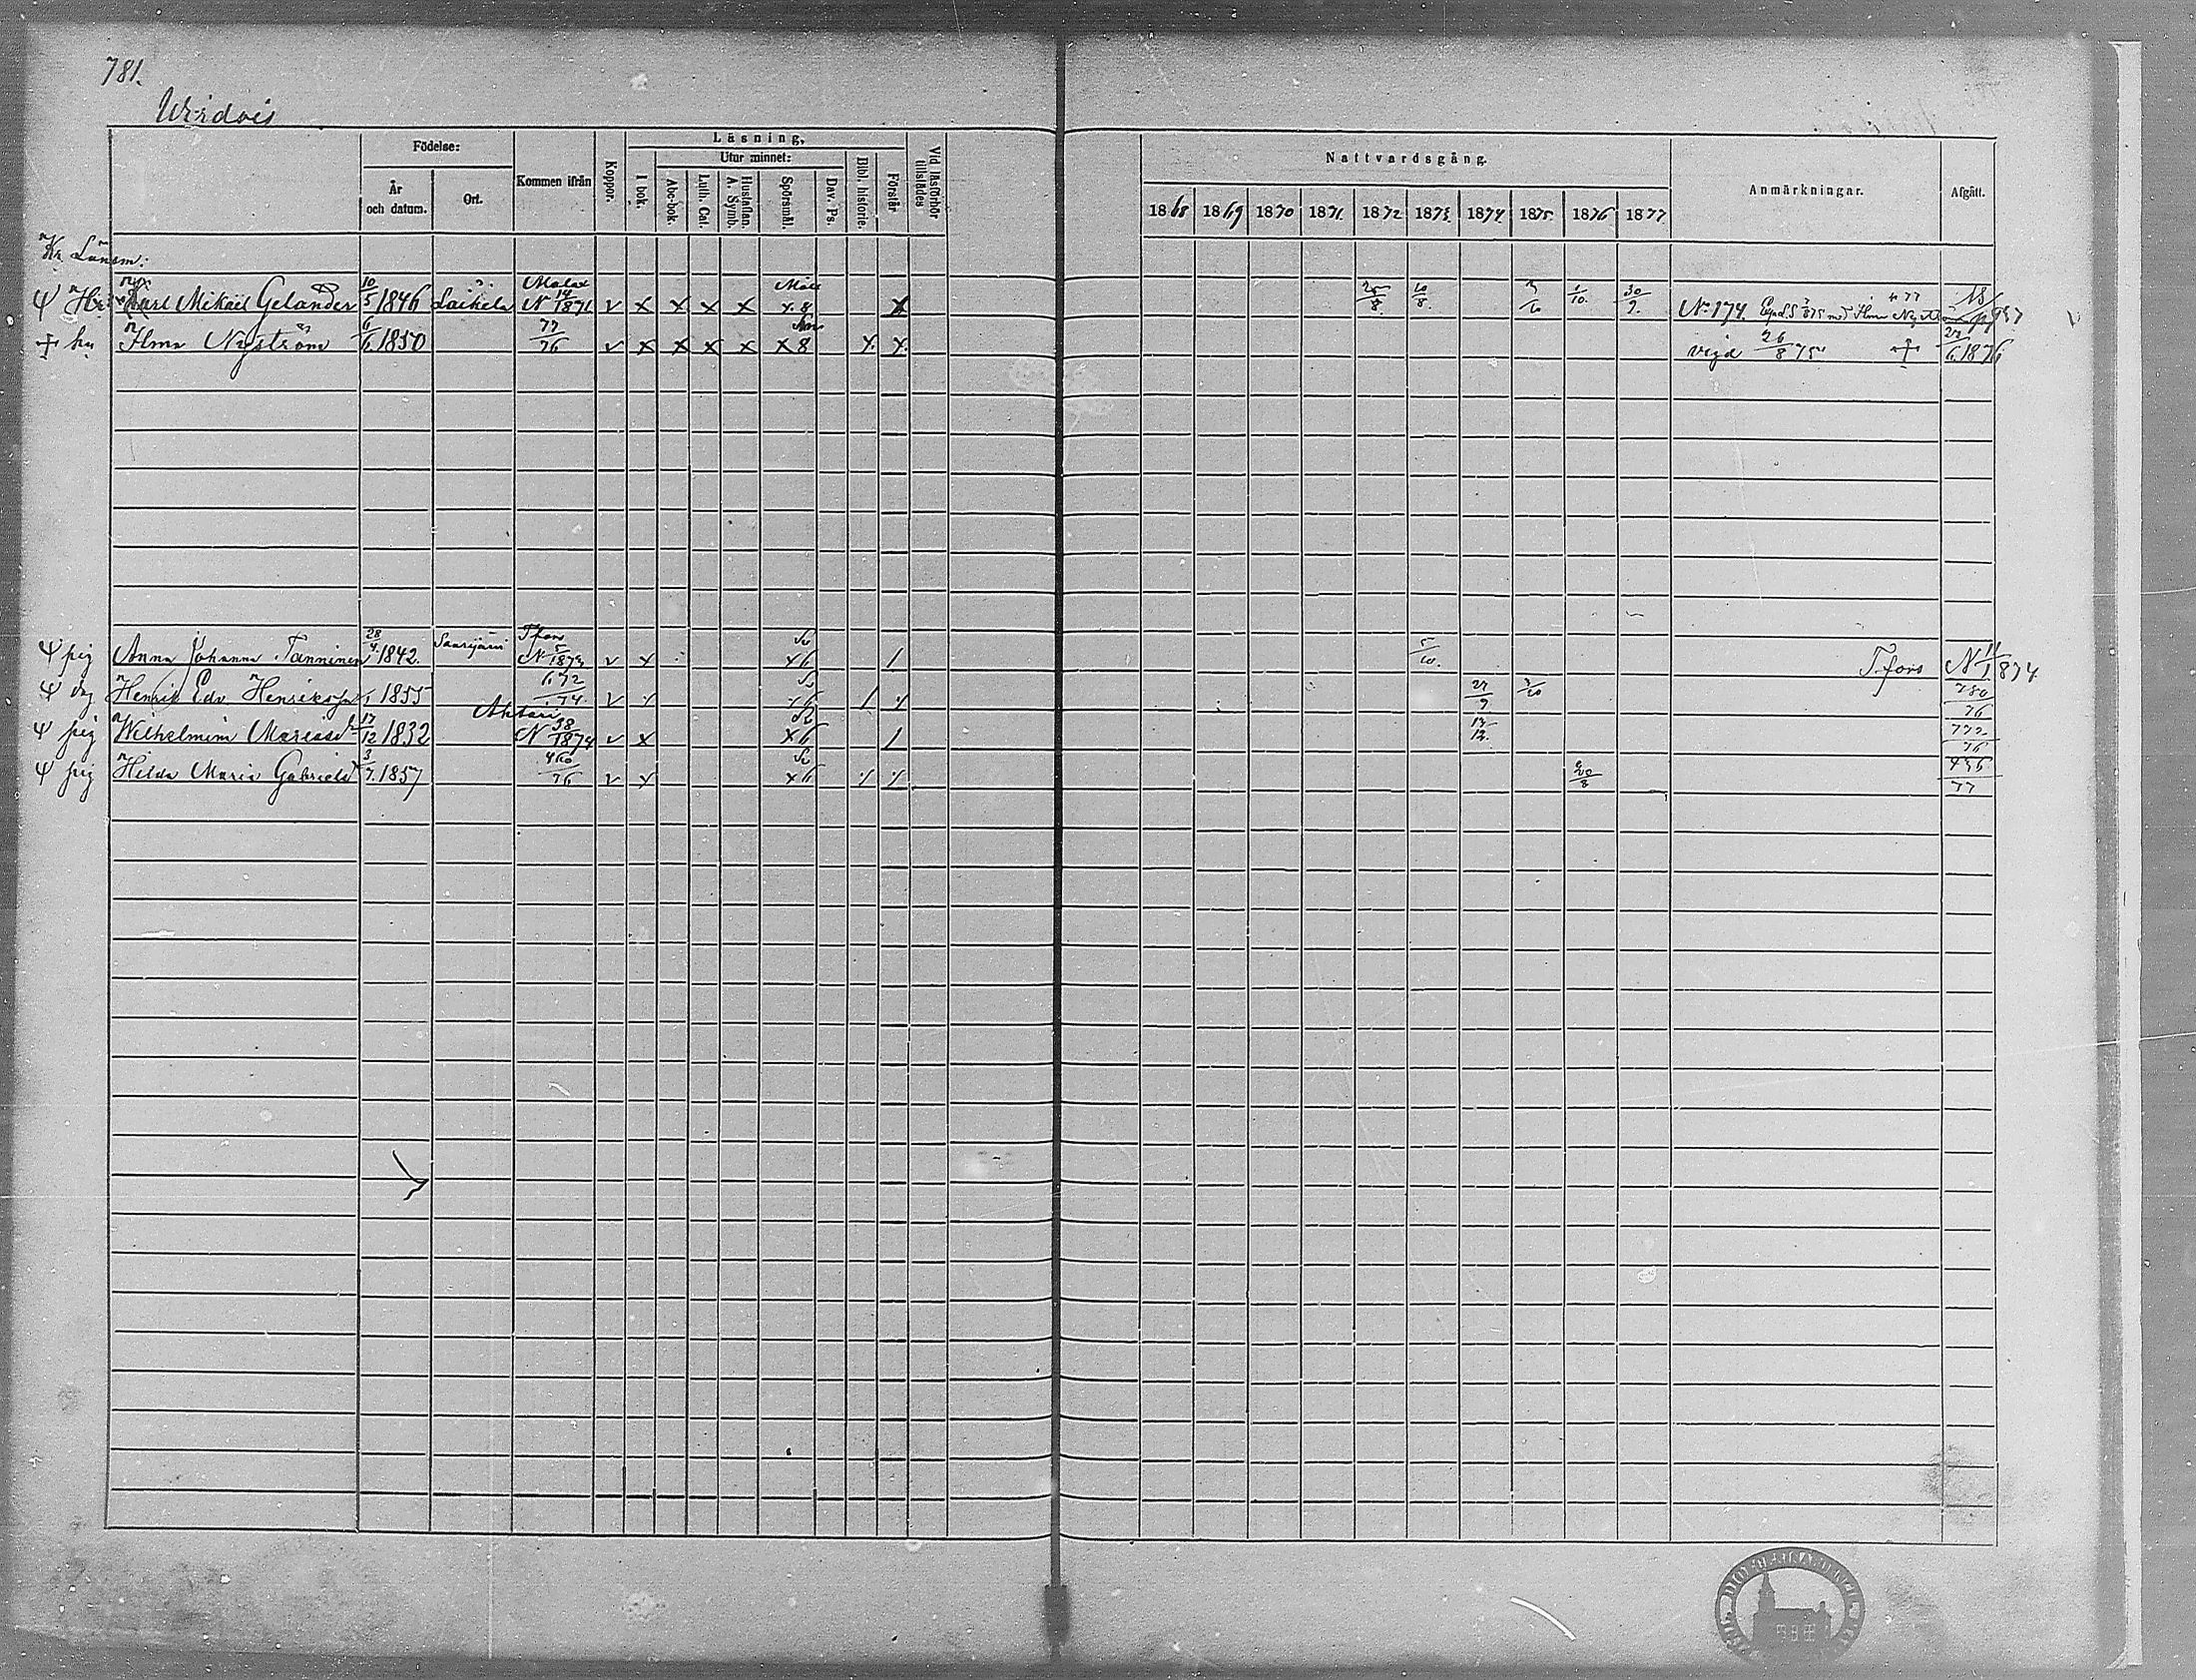 781.
Wirdois
Födelse:
År och datum.
Ort.
Kommen ifrån
Koppor.
Läsning,
I bok.
Utur minnet:
Abc-bok.
Luth. Cat.
Hustaflan. A. Symb.
Spörsmål.
Dav. Ps.
Bibl. historie.
Förstår
Vid läsförhör tillstädes
Nattvardsgång.
1868 1869 1870 1871. 1872 1873. 1874 1875. 1876 1877.
Anmärkningar.
Afgått.
Kr. Länsm:
Hr Karl Mikael Gelander 10/5 1846 Laihela Malax N 14/1871 v x x x x x 8 x 25/8. 10/8. 3/10 1/10. 30/9. No 174.
hu Ilma Nyström 6/6. 1850 77/76 v x x x x x 8 x x vigd 26/8 75 27/6 1876
pig Anna Johanna Tanninen 28/4. 1842. Saarijärvi T.fors N 5/1873 v x x 6 / 5/10. T.fors N 11/1874
drg Henrik Edv. Henriksson 1855 672/74. v x x 6 / x 27/9 3/10 780/76
pig Wilhelmina Mariasdr 17/12 1832 Ahtäri N 98/1874 v x x 6 / 13/12. 772/76
pig Hilda Maria Gabrielsdr 3/7. 1857 460/76 v x x 6 20/8 456/77